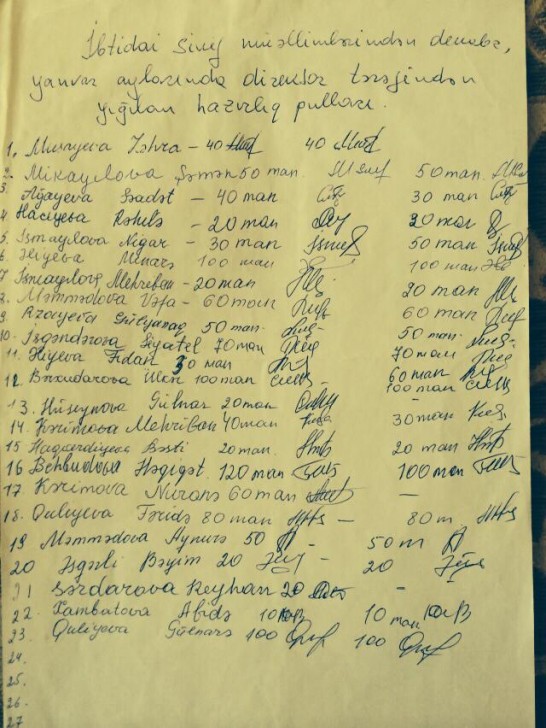 İbtidai sinif müəllimlərindən dekabr,
yanvar aylarında direktor tərəfindən
yığılan hazırlıq pulları.
1. Murayeva Zəhra – 40 40
2. Mikayılova Səmən 50 man. 50 man.
3. Ağayeva Səadət – 40 man 30 man
4. Hacıyeva Rəhilə – 20 man 20 man
5. İsmayılova Nigar – 30 man 50 man
6. Əliyeva Minarə 100 man 100 man
7. İsmayılova Mehriban – 20 man 20 man
8. Məmmədova Vəfa – 60 man 60 man
9. Rzayeva Gülyanaq 50 man. 50 man.
10. İsgəndərova Siyatel 70 man 70 man
11. Əliyeva Fidan 30 man 60 man
12. Bəxudarova Ülkər 100 man 100 man
13. Hüseynova Gülnar 20 man
14. Kərimova Mehriban 40 man 30 man
15 Haqverdiyeva Bəsti 20 man. 20 man
16 Behbudova Həqiqət 120 man 100 man
17. Kərimova Nuranə 60 man –
18. Quliyeva Fəridə 80 man – 80 m
19 Məmmədova Aynurə 50 – 50 m
20 Əsgərli Bəyim 20 – 20
21 Sərdarova Reyhan 20 –
22. Xambatova Abidə 10 man 10 man
23. Quliyeva Gülnarə 100 100
24.
25.
26.
27